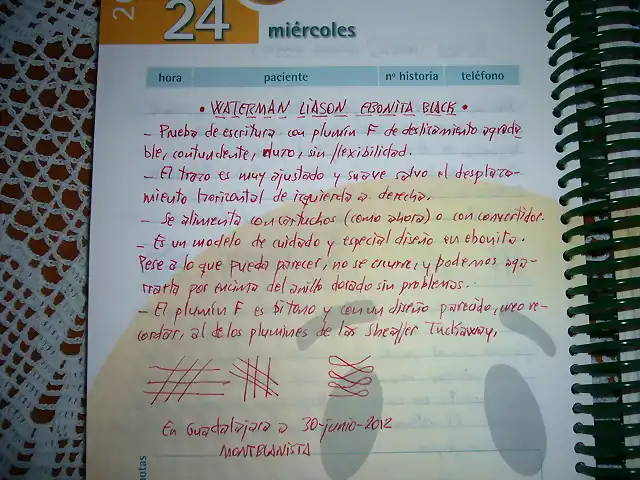 24
miércoles
hora paciente nº historia teléfono
• WATERMAN LIASON EBONITA BLACK •
- Prueba de escritura con plumín F de deslizamiento agrada
ble, contundente, duro, sin flexibilidad.
- El trazo es muy ajustado y suave salvo el desplaza-
miento horizontal de izquierda a derecha.
- Se alimenta con cartuchos (como ahora) o con convertidor.
- Es un modelo de cuidado y especial diseño en ebonita.
Pese a lo que pueda parecer, no se escurre, y podemos aga-
rrarla por encima del anillo dorado sin problemas.
- El plumín F es bitono y con un diseño parecido, creo re-
cordar, al de los plumines de las Sheaffer Tuckaway,
En Guadalajara a 30-junio-2012
MONTBLANISTA
notas